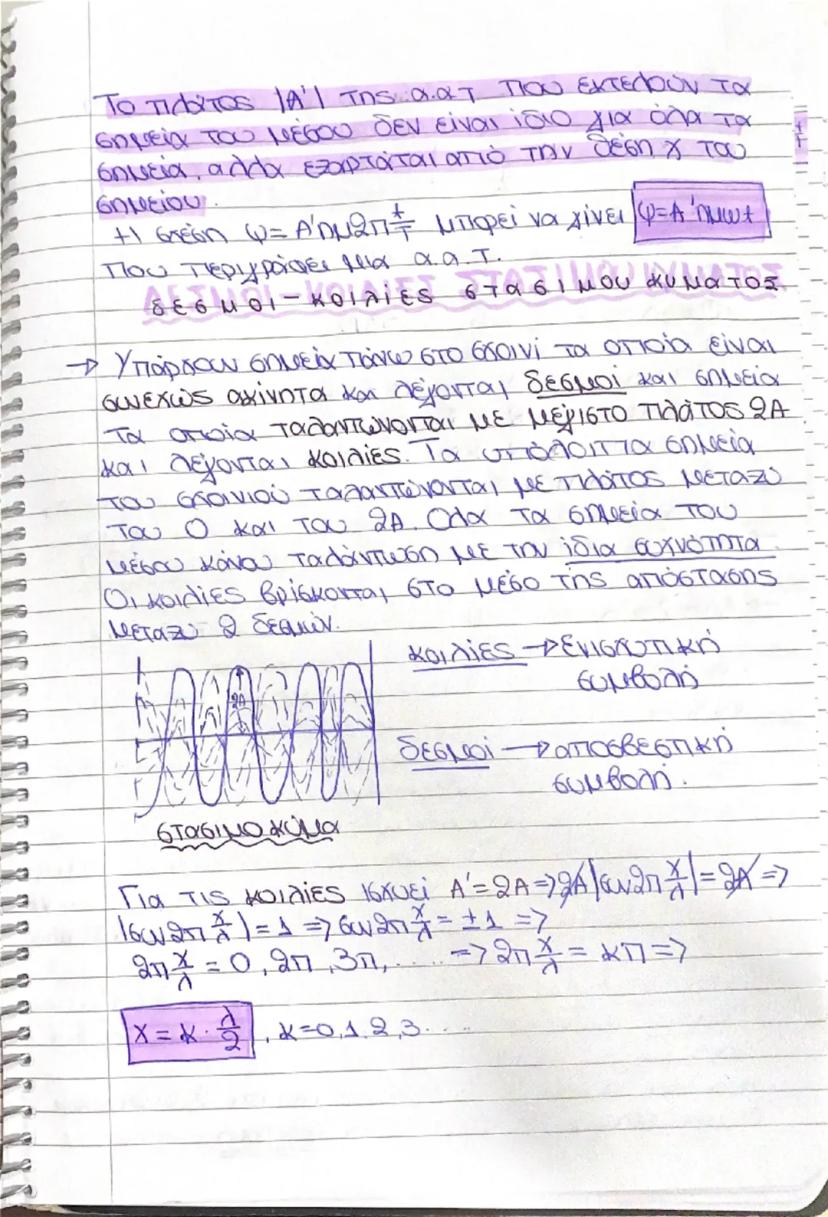 Το πλάτος |Α'| της α.α.τ που εκτελούν τα
σημεία του μέσου δεν είναι ίδιο για όλα τα
σημεία, αλλά εξαρτάται από την θέση χ του
σημείου.
Η σχέση ψ=Α'ημ2π t/T μπορεί να γίνει ψ=Α'ημωt
που περιγράφει μια α.α.τ.
δεσμοι-κοιλιες στασιμου κυματος
→ Υπάρχουν σημεία πάνω στο σχοινί τα οποία είναι
συνεχώς ακίνητα και λέγονται δεσμοί και σημεία
τα οποία ταλαντώνονται με μέγιστο πλάτος 2Α
και λέγονται κοιλίες. Τα υπόλοιπα σημεία
του σχοινιού ταλαντώνονται με πλάτος μεταξύ
του 0 και του 2Α. Όλα τα σημεία του
μέσου κάνου ταλάντωση με την ίδια συχνότητα
Οι κοιλίες βρίσκονται στο μέσο της απόστασης
μεταξύ 2 δεσμών.
κοιλίες → Ενισχυτική
συμβολή
2Α
δεσμοί → αποσβεστική
συμβολή.
στασιμο κύμα
Για τις κοιλίες ισχυεί Α'=2Α => 2Α|συν2π x/λ|=2Α =>
|συν2π x/λ|=1 => συν2π x/λ = ±1 =>
2π x/λ = 0, 2π, 3π, ..... => 2π x/λ = κπ =>
x = κ · λ/2 , κ=0,1,2,3....